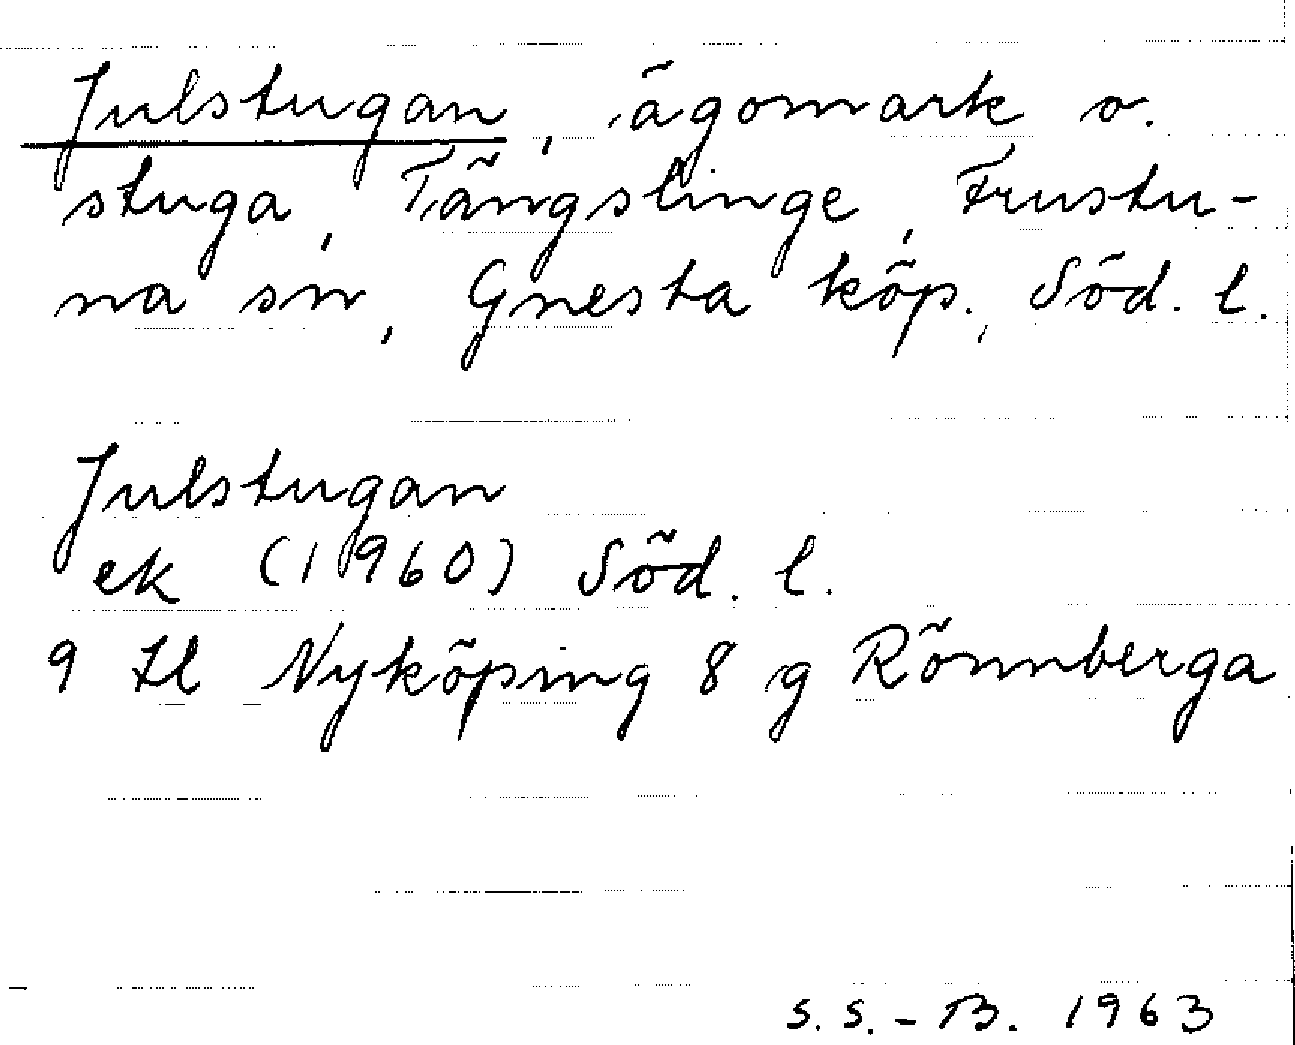 Julstugan, ägomark o.
stuga, Tängslinge, Frustu-
na sn, Gnesta köp., Söd. l.
Julstugan
ek (1960) Söd. l.
9 Il Nyköping 8 g Rönnberga
S. S. - B. 1963